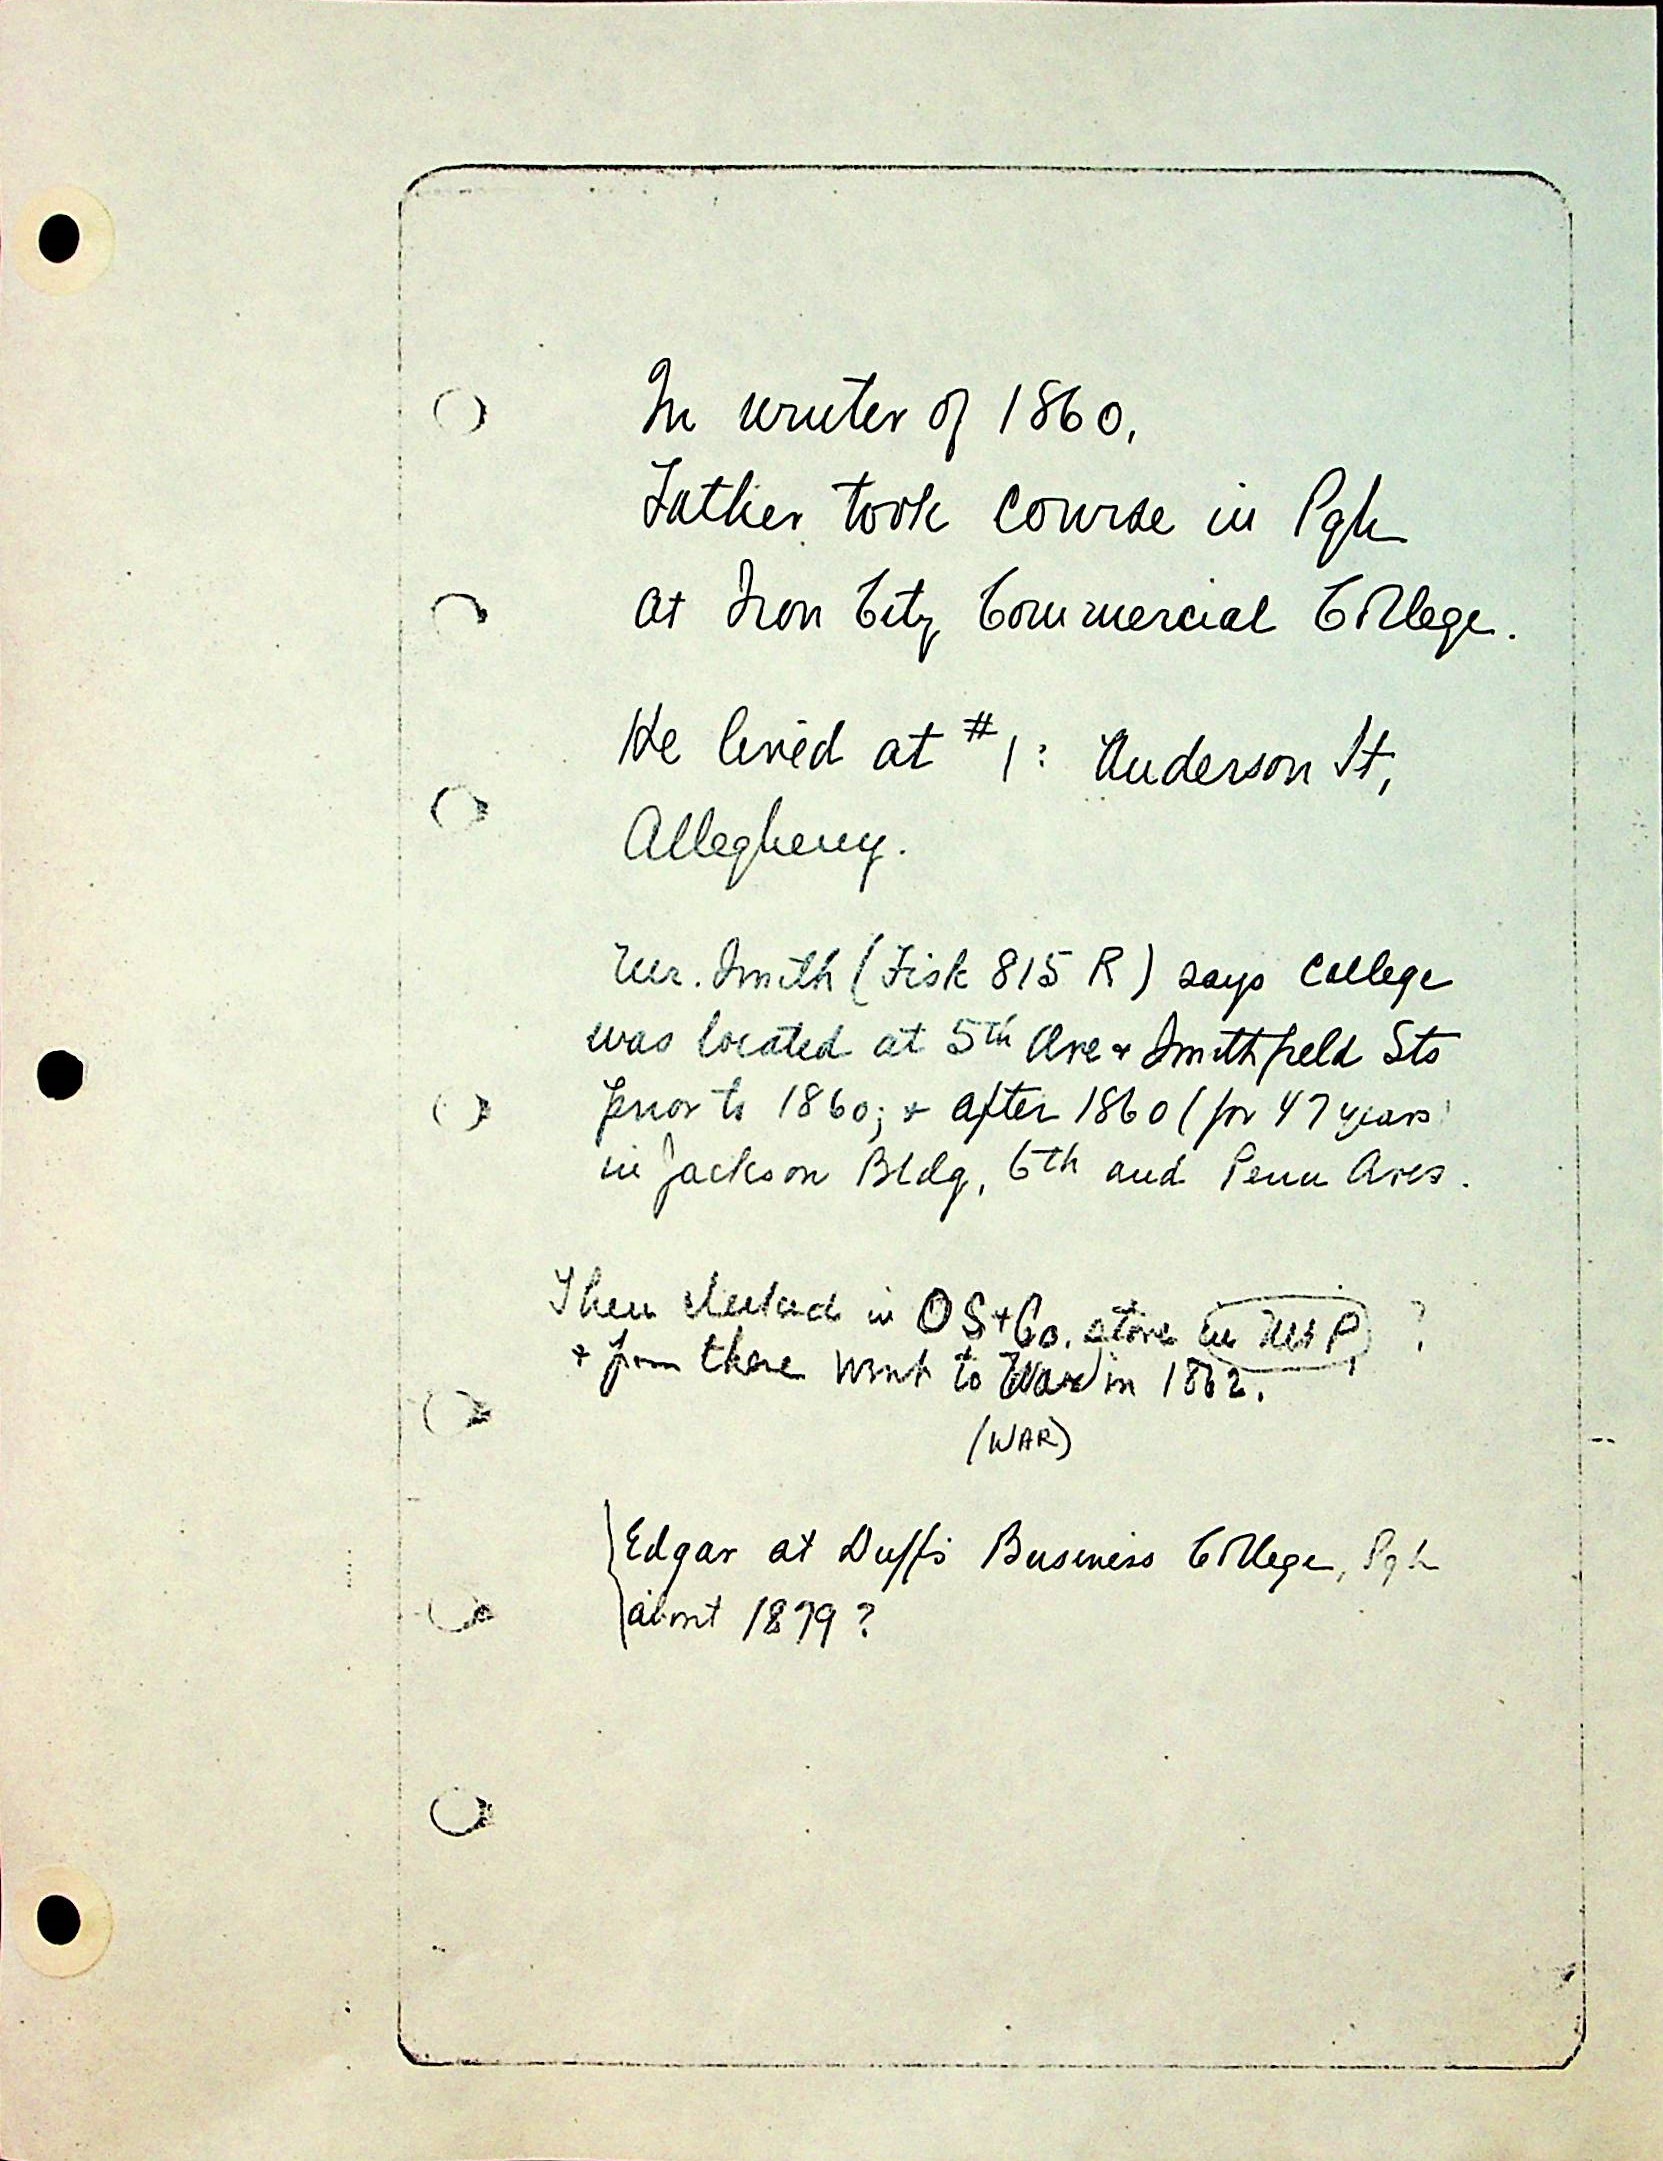 In winter of 1860,
Father took course in Pgh
at Iron City Commercial College.
He lived at #1: Anderson St,
Allegheny.
Mr. Smith (Fisk 815 R) says College
was located at 5th Ave + Smithfield Sts
prior to 1860; + after 1860 (for 47 years
in Jackson Bldg, 6th and Penn Aves.
Then clerked in OS+Co. store in Mt P, ?
+ from there went to War in 1862.
(WAR)
Edgar at Duffs Business College, Pgh
about 1879?